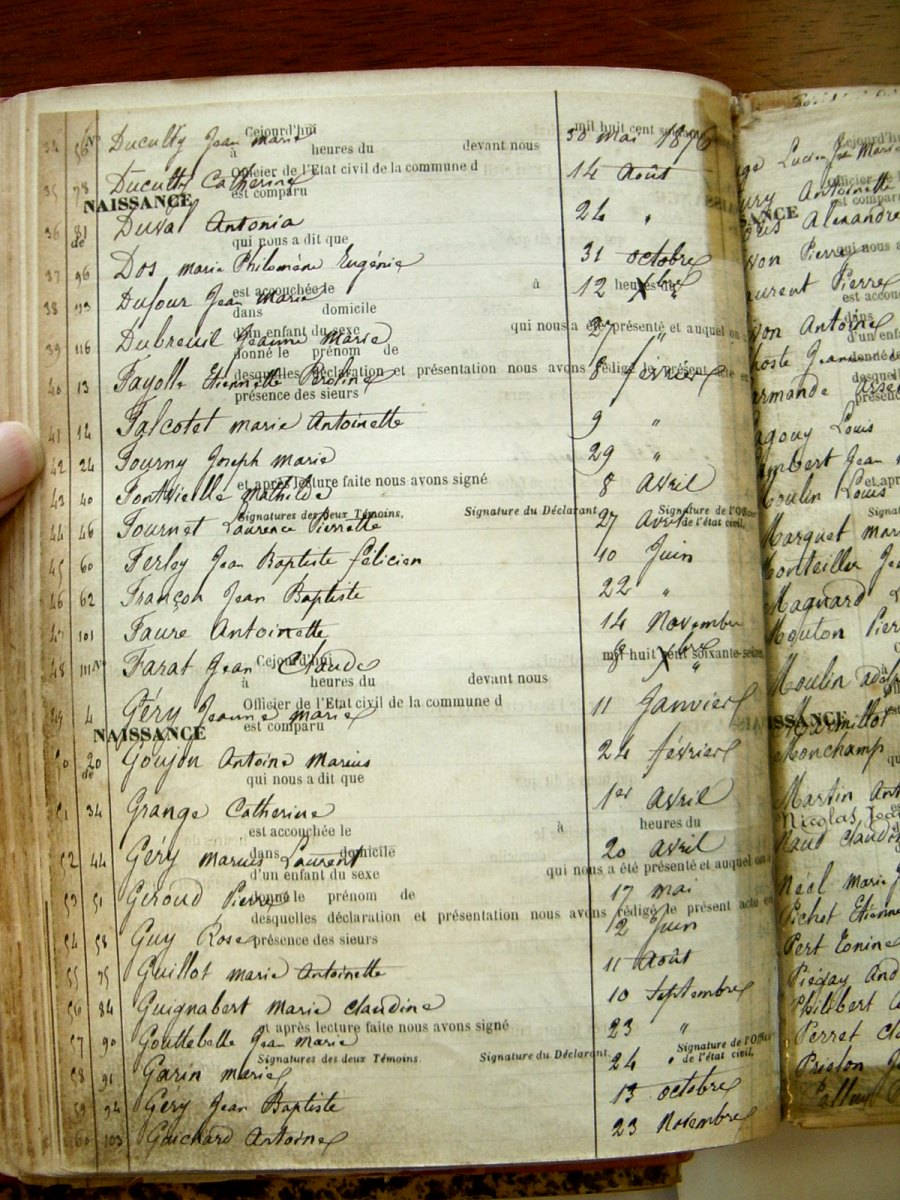 34 56 Duculty Jean Marie 30 mai 1876
Cejourd'hui mil huit cent soixante
à heures du devant nous
Officier de l'Etat civil de la commune d
35 78 Duculty Catherine 14 Août
est comparu
NAISSANCE
36 81 Duval Antonia 24 "
de qui nous a dit que
37 96 Dos marie Philomène Eugénie 31 octobre
est accouchée le à heures du
38 113 Dufour Jean Marie 12 Xbre
dans domicile
d'un enfant du sexe qui nous a été présenté et auquel on
39 116 Dubreuil Jeanne Marie 27 "
donné le prénom de
desquelles déclaration et présentation nous avons rédigé le présent acte en
40 13 Fayolle Etiennette 8 février
présence des sieurs
41 14 Falcotet marie Antoinette 9 "
42 24 Fourny Joseph Marie 29 "
et après lecture faite nous avons signé
43 40 Fontvieille Mathilde 8 Avril
Signatures des deux Témoins, Signature du Déclarant, Signature de l'Officier
de l'état civil,
44 46 Fournet Laurence Pierrette 27 Avril
45 60 Ferley Jean Baptiste félicien 10 Juin
46 62 Françon Jean Baptiste 22 "
47 101 Faure Antoinette 14 Novembre
48 111 Farat Jean Claude 8 Xbre
N° Cejourd'hui mil huit cent soixante-seize,
à heures du devant nous
Officier de l'Etat civil de la commune d
49 4 Géry Jeanne marie 11 Janvier
est comparu
NAISSANCE
50 20 Goujon Antoine Marius 24 février
de qui nous a dit que
51 34 Grange Catherine 1er Avril
est accouchée le à heures du
52 44 Géry marius Laurent 20 avril
dans domicile
d'un enfant du sexe qui nous a été présenté et auquel on a
53 51 Giroud Pierre 17 mai
donné le prénom de
desquelles déclaration et présentation nous avons rédigé le présent acte en
54 58 Guy Rose 2 Juin
présence des sieurs
55 75 Guillot marie Antoinette 11 Août
56 84 Guignabert marie claudine 10 Septembre
et après lecture faite nous avons signé
57 90 Gouttebelle Jean Marie 23 "
Signatures des deux Témoins. Signature du Déclarant, Signature de l'Officier
de l'état civil,
58 91 Garin marie 24 "
59 94 Géry Jean Baptiste 13 octobre
60 103 Guichard Antoine 23 Novembre
Lucien Marie
Cejourd'hui
Antoinette
Officier de
est comparu
Alexandre
Pierre
qui nous a
Laurent Pierre
est accou
Antoine
dans
d'un enfant
Jeanne
donné le
desquelles
présence
Louis
Lambert Jean
et après
Moulin Louis
Marquet mar
Monteiller Je
Magnard
Mouton Pier
Moulin
Marmillot
Monchamp
Martin Ant
Nicolas, Jea
Naud Claud
Néel Marie
Pichet Etienne
Pert Tonine
Piégay And
Philibert
Perret Cl